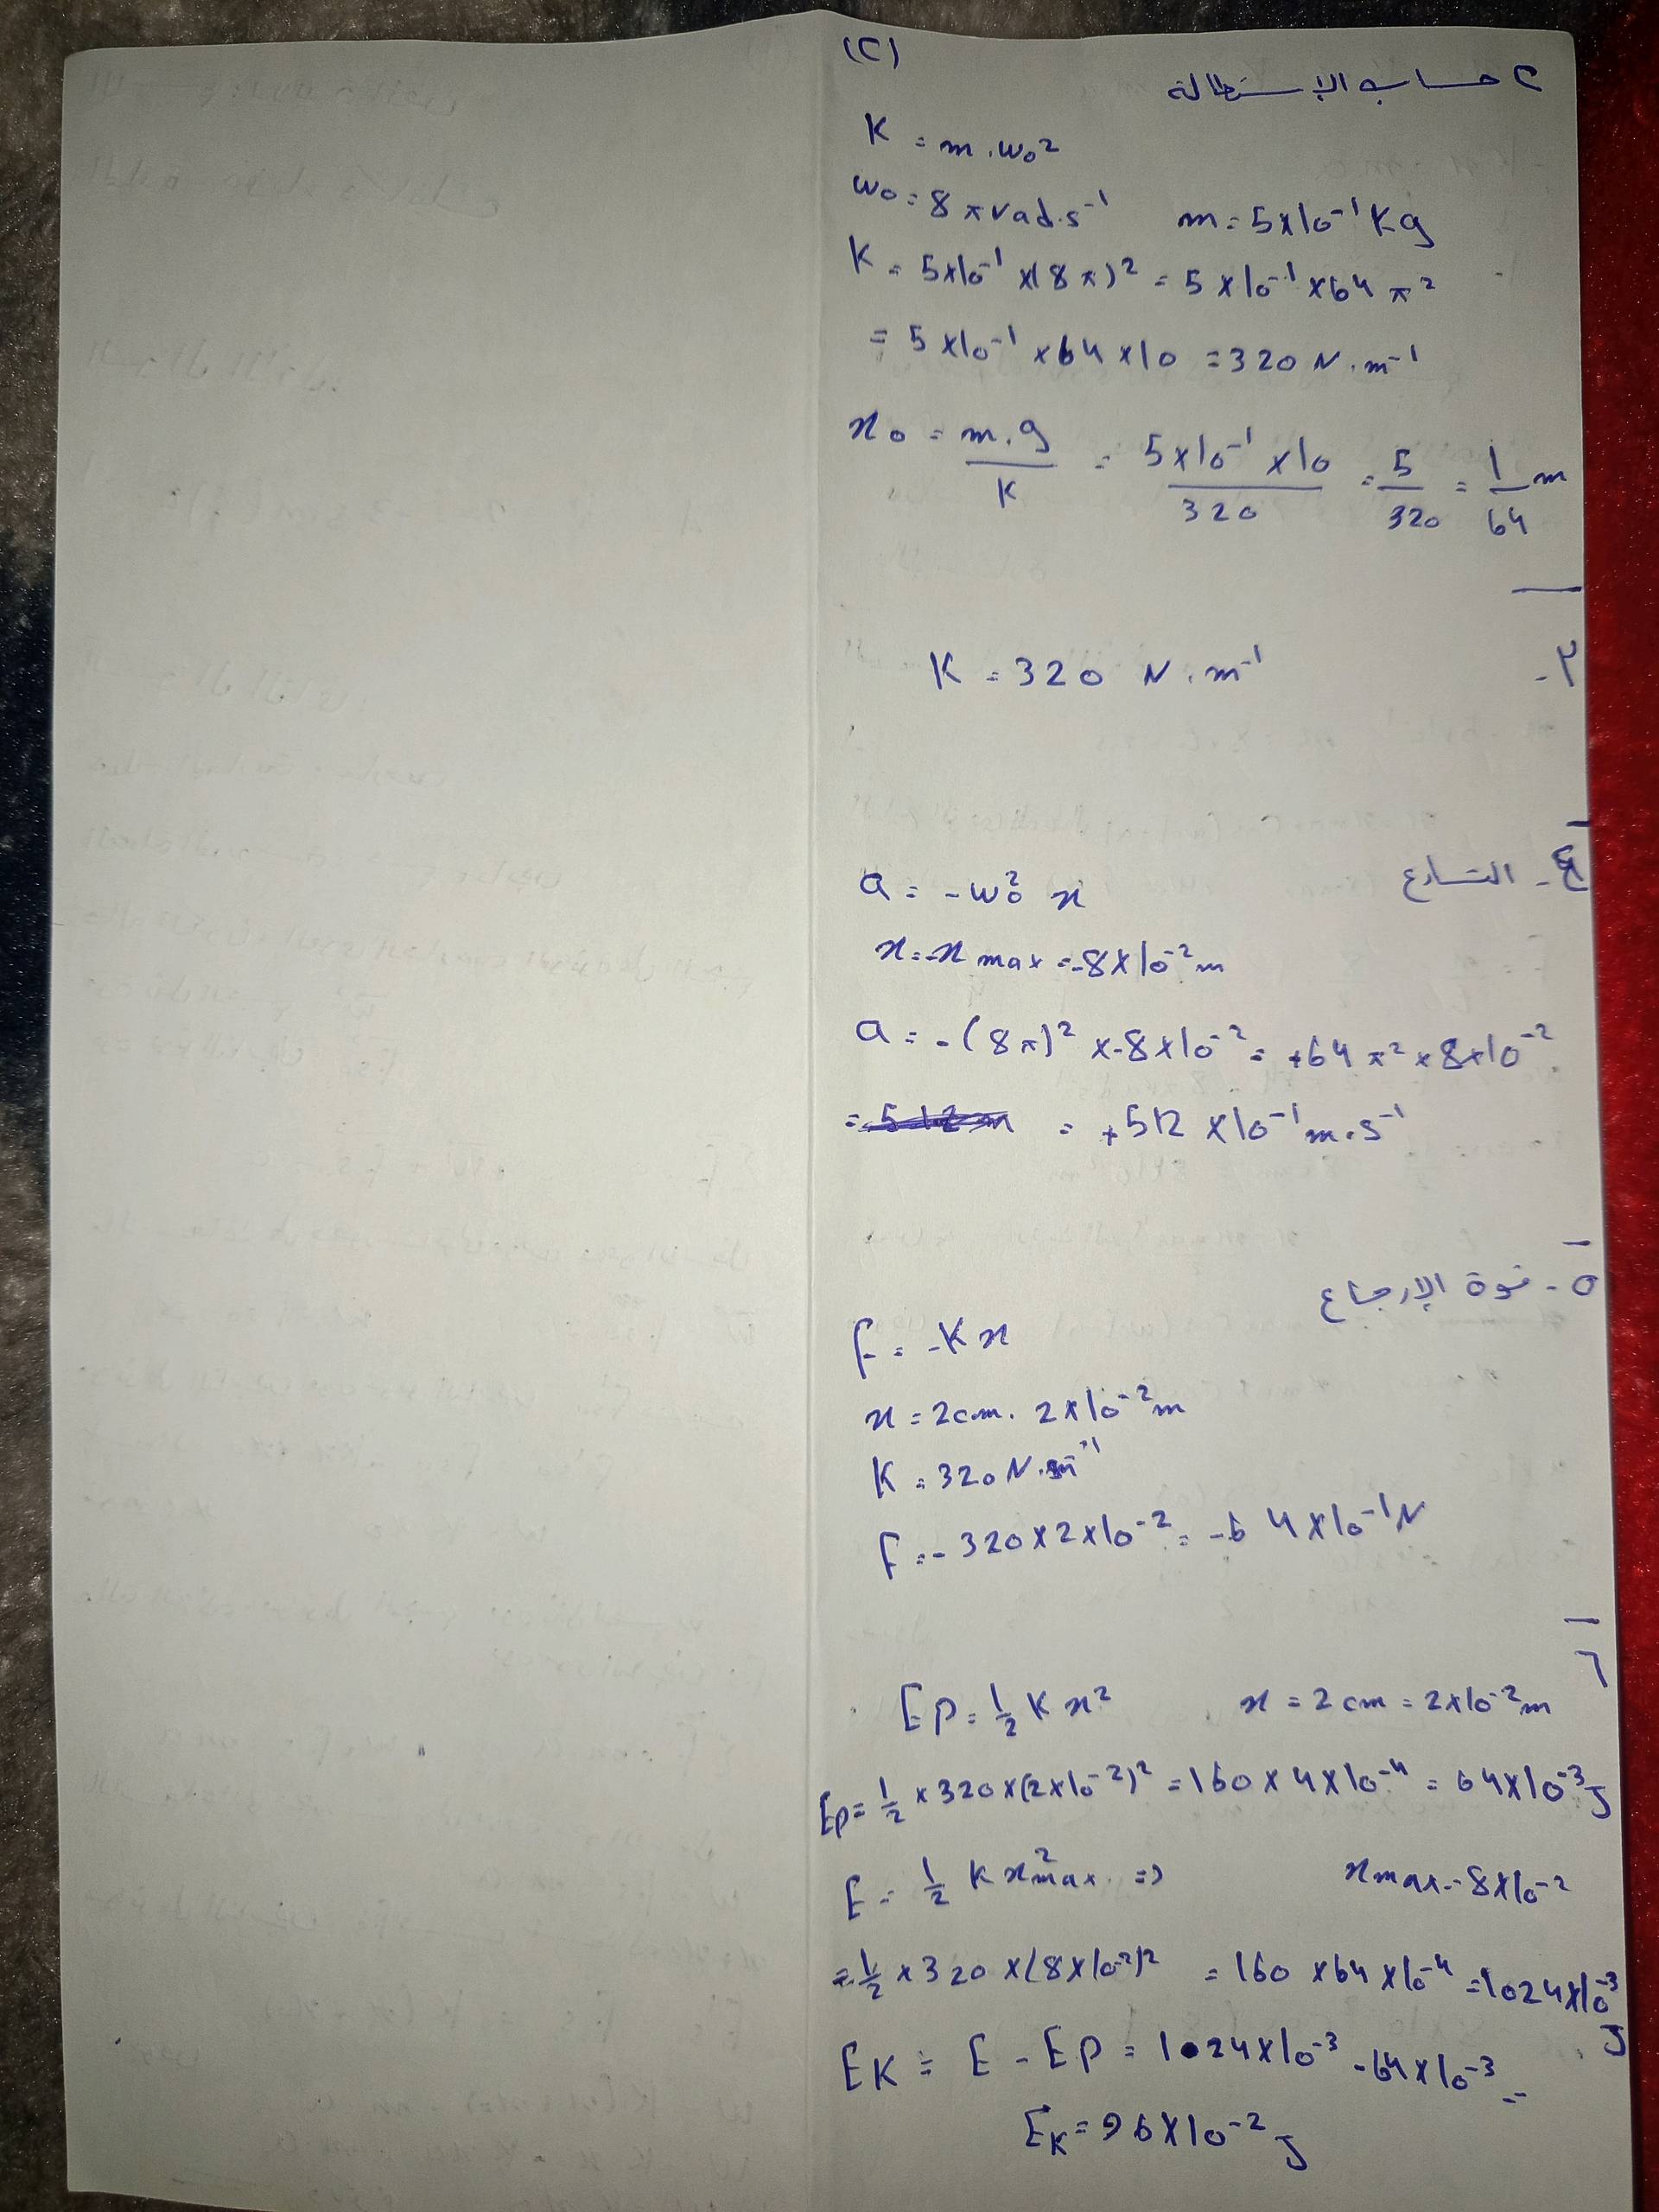 (2)
٢ حساب الإستطالة
K = m . ω₀²
ω₀ = 8 π rad.s⁻¹ m = 5x10⁻¹ Kg
K = 5x10⁻¹ x(8 π)² = 5 x10⁻¹ x64 π²
= 5 x10⁻¹ x64 x10 = 320 N . m⁻¹
x₀ = m.g / K = 5x10⁻¹ x10 / 320 = 5 / 320 = 1 / 64 m
٣ -
K = 320 N . m⁻¹
٤ - التسارع
a = -ω₀² x
x = -x max = -8x10⁻² m
a = -(8π)² x-8x10⁻² = +64 π² x 8x10⁻²
= = +512 x10⁻¹ m.s⁻¹
٥ - قوة الإرجاع
F = -K x
x = 2cm. 2x10⁻² m
K = 320 N.m⁻¹
F = - 320x2x10⁻² = -64x10⁻¹ N
٦
Ep = ½ K x² x = 2 cm = 2x10⁻² m
Ep = ½ x 320 x(2x10⁻²)² = 160 x 4x10⁻⁴ = 64x10⁻³ J
E = ½ K x²max. => xmax = 8x10⁻²
= ½ x 320 x(8x10⁻²)² = 160 x64 x10⁻⁴ = 1024x10⁻³ J
EK = E - Ep = 1024x10⁻³ - 64x10⁻³ =
EK = 96x10⁻² J